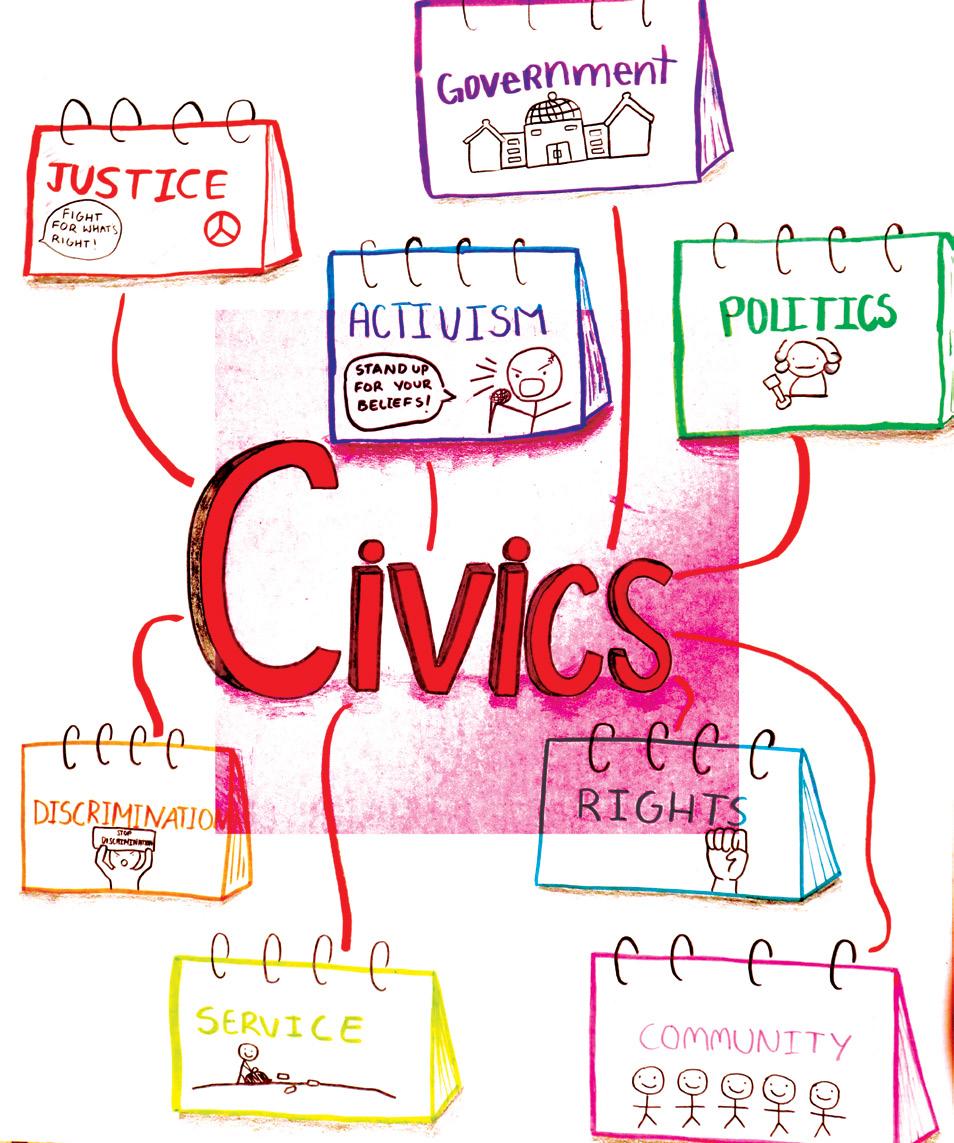 GOVERNment
JUSTICE
FIGHT
FOR WHATS
RIGHT!
ACTIVISM
STAND UP
FOR YOUR
BELIEFS!
POLITICS
Civics
DISCRIMINATION
STOP
DISCRIMINATION
RIGHTS
SERVICE
COMMUNITY